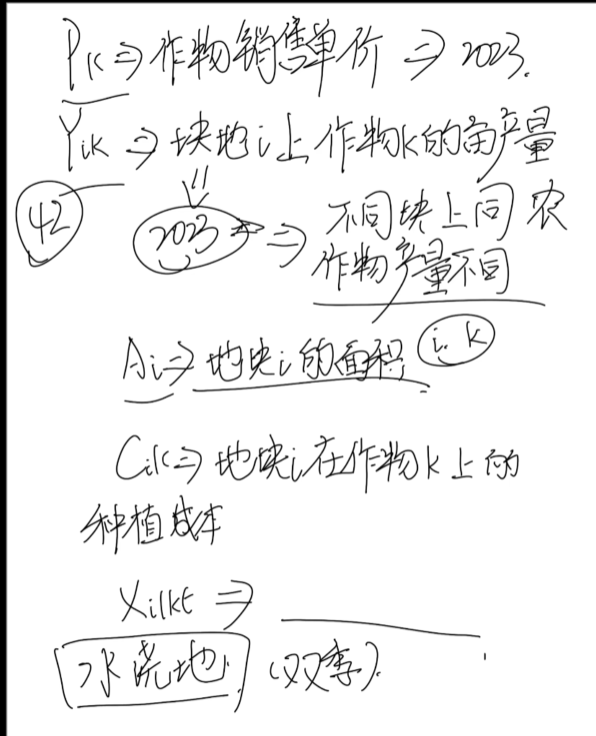 Pk⇒作物销售单价⇒2023.
Yik⇒块地i上作物k的亩产量
42
2023⇒不同块上同农
作物产量不同
Ai⇒地块i的面积 i.k
Cik⇒地块i在作物k上的
种植成本
Xilkt⇒
水浇地 (双季).